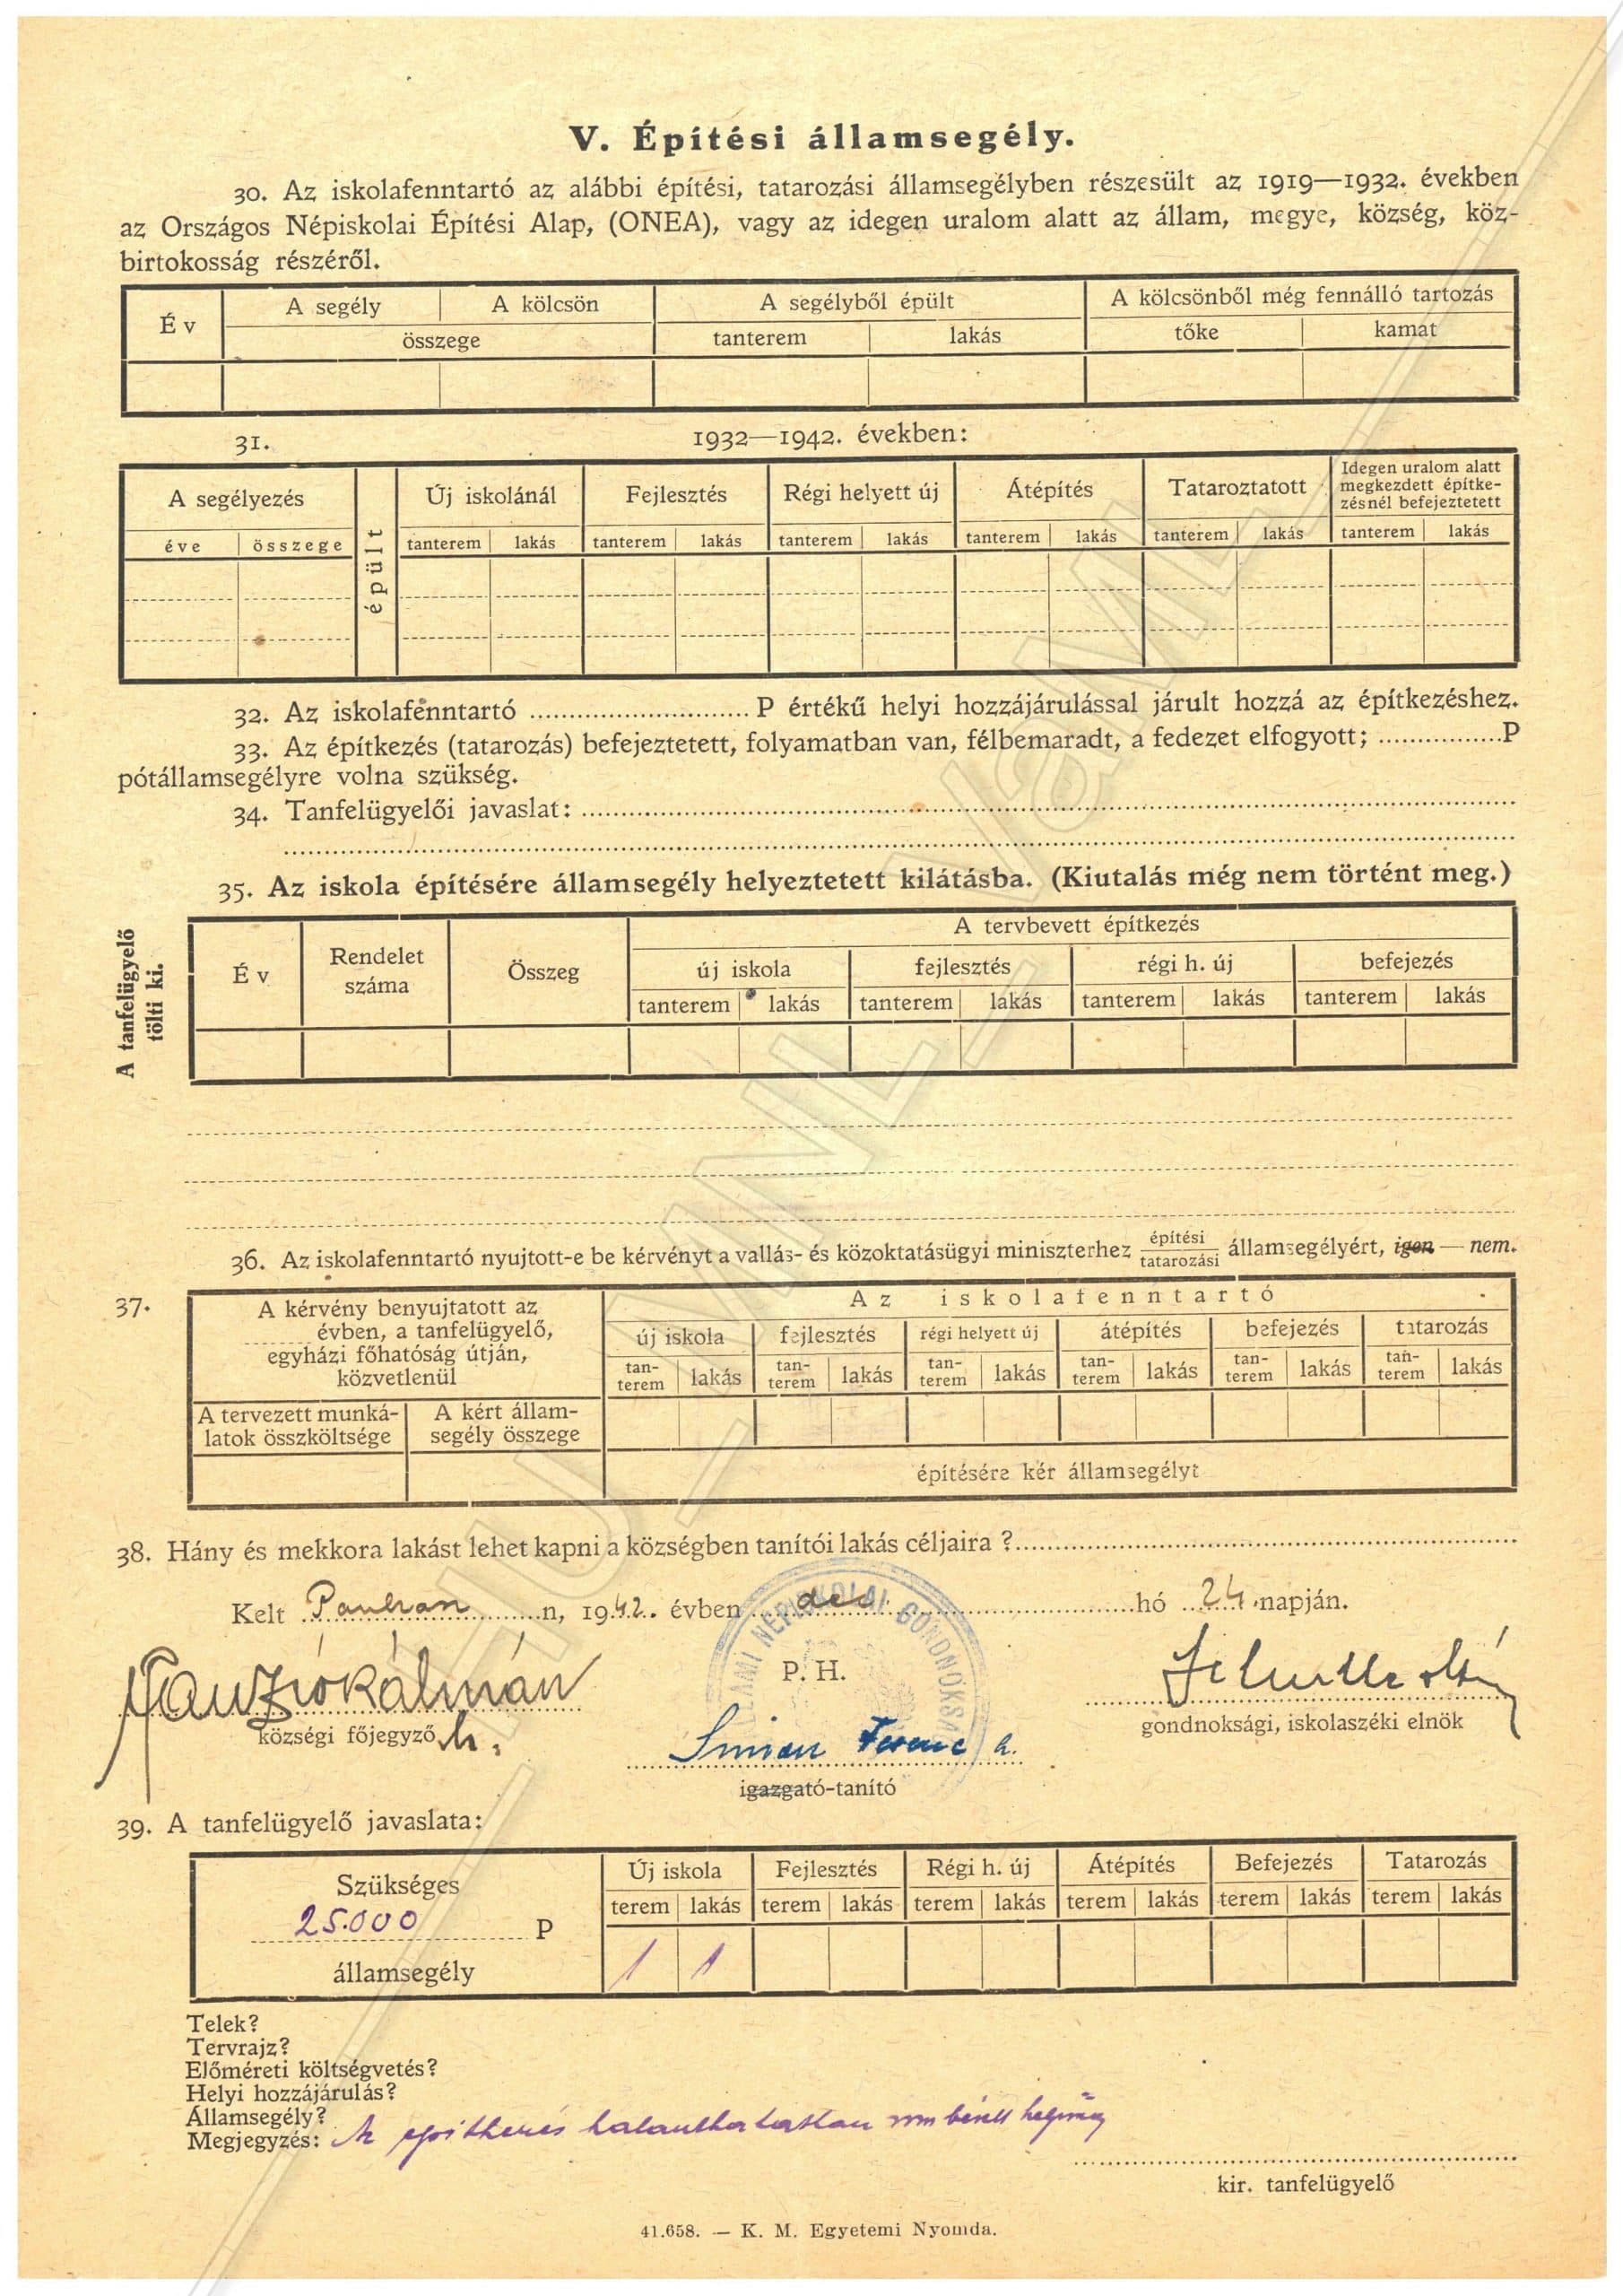 V. Építési államsegély.
30. Az iskolafenntartó az alábbi építési, tatarozási államsegélyben részesült az 1919—1932. években
az Országos Népiskolai Építési Alap, (ONEA), vagy az idegen uralom alatt az állam, megye, község, köz-
birtokosság részéről.
Év A segély A kölcsön A segélyből épült A kölcsönből még fennálló tartozás
összege tanterem lakás tőke kamat
31. 1932—1942. években:
A segélyezés épült Új iskolánál Fejlesztés Régi helyett új Átépítés Tataroztatott Idegen uralom alatt
megkezdett építke-
zésnél befejeztetett
éve összege tanterem lakás tanterem lakás tanterem lakás tanterem lakás tanterem lakás tanterem lakás
32. Az iskolafenntartó ........ P értékű helyi hozzájárulással járult hozzá az építkezéshez.
33. Az építkezés (tatarozás) befejeztetett, folyamatban van, félbemaradt, a fedezet elfogyott; ........ P
pótállamsegélyre volna szükség.
34. Tanfelügyelői javaslat:
35. Az iskola építésére államsegély helyeztetett kilátásba. (Kiutalás még nem történt meg.)
A tanfelügyelő
tölti ki.
Év Rendelet
száma Összeg A tervbevett építkezés
új iskola fejlesztés régi h. új befejezés
tanterem lakás tanterem lakás tanterem lakás tanterem lakás
36. Az iskolafenntartó nyujtott-e be kérvényt a vallás- és közoktatásügyi miniszterhez építési
tatarozási államsegélyért, igen — nem.
37. A kérvény benyujtatott az
évben, a tanfelügyelő,
egyházi főhatóság útján,
közvetlenül
Az iskolafenntartó
új iskola fejlesztés régi helyett új átépítés befejezés tatarozás
tan-
terem lakás tan-
terem lakás tan-
terem lakás tan-
terem lakás tan-
terem lakás tan-
terem lakás
A tervezett munká-
latok összköltsége
A kért állam-
segély összege
építésére kér államsegélyt
38. Hány és mekkora lakást lehet kapni a községben tanítói lakás céljaira ?
Kelt n, 1942. évben dec. hó 24 napján.
ÁLLAMI NÉPISKOLAI GONDNOKSÁG
P. H.
Kálmán
községi főjegyző h.
Ferenc h.
igazgató-tanító
gondnoksági, iskolaszéki elnök
39. A tanfelügyelő javaslata:
Szükséges
25.000 P
államsegély
Új iskola Fejlesztés Régi h. új Átépítés Befejezés Tatarozás
terem lakás terem lakás terem lakás terem lakás terem lakás terem lakás
1 1
Telek?
Tervrajz?
Előméreti költségvetés?
Helyi hozzájárulás?
Államsegély?
Megjegyzés: Az építkezés halaszthatatlan
kir. tanfelügyelő
41.658. — K. M. Egyetemi Nyomda.